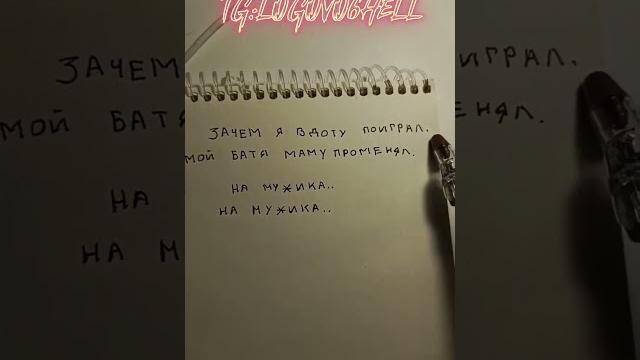 TG:LOGOVO6HELL
ЗАЧЕМ Я В ДОТУ ПОИГРАЛ.
МОЙ БАТЯ МАМУ ПРОМЕНЯЛ.
НА МУЖИКА..
НА МУЖИКА..